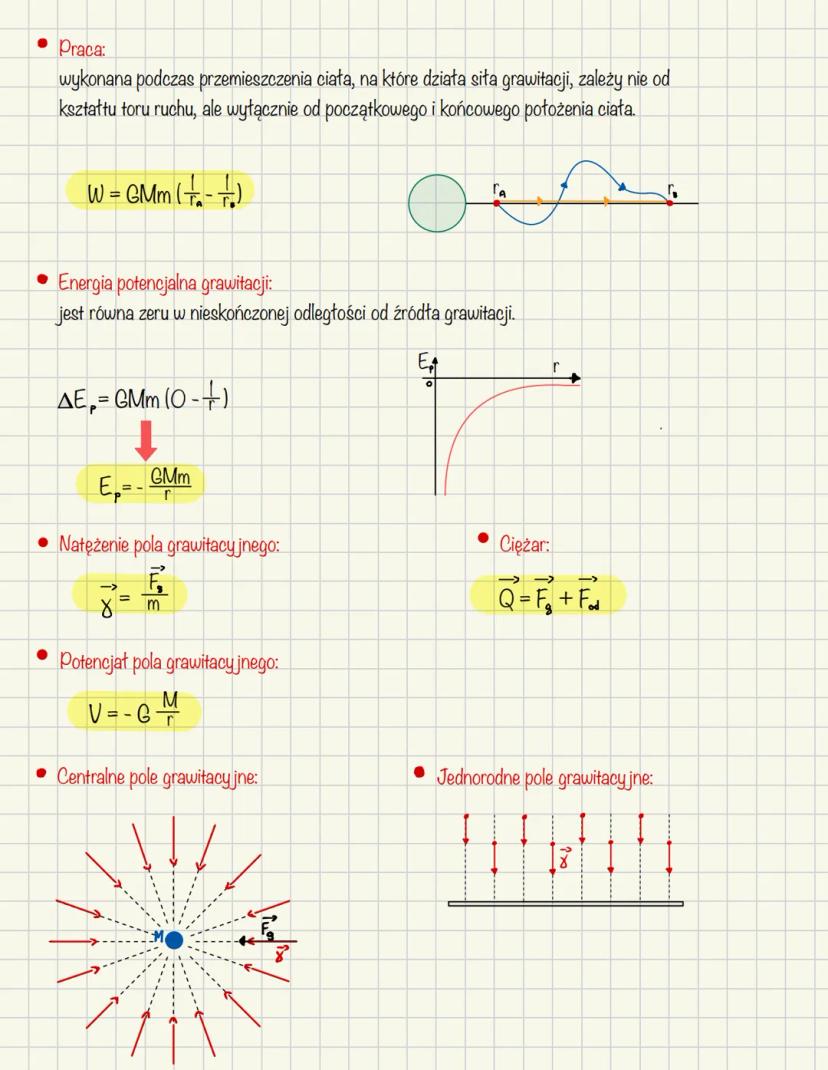 Praca:
wykonana podczas przemieszczenia ciała, na które działa siła grawitacji, zależy nie od
kształtu toru ruchu, ale wyłącznie od początkowego i końcowego położenia ciała.
W = GMm (1/r_A - 1/r_B)
r_A r_B
Energia potencjalna grawitacji:
jest równa zeru w nieskończonej odległości od źródła grawitacji.
E_p r
0
ΔE_p = GMm (0 - 1/r)
E_p = - GMm/r
Natężenie pola grawitacyjnego:
Ciężar:
γ⃗ = F⃗_g/m
Q⃗ = F⃗_g + F⃗_od
Potencjał pola grawitacyjnego:
V = - G M/r
Centralne pole grawitacyjne:
Jednorodne pole grawitacyjne:
γ⃗
M
F⃗_g
γ⃗